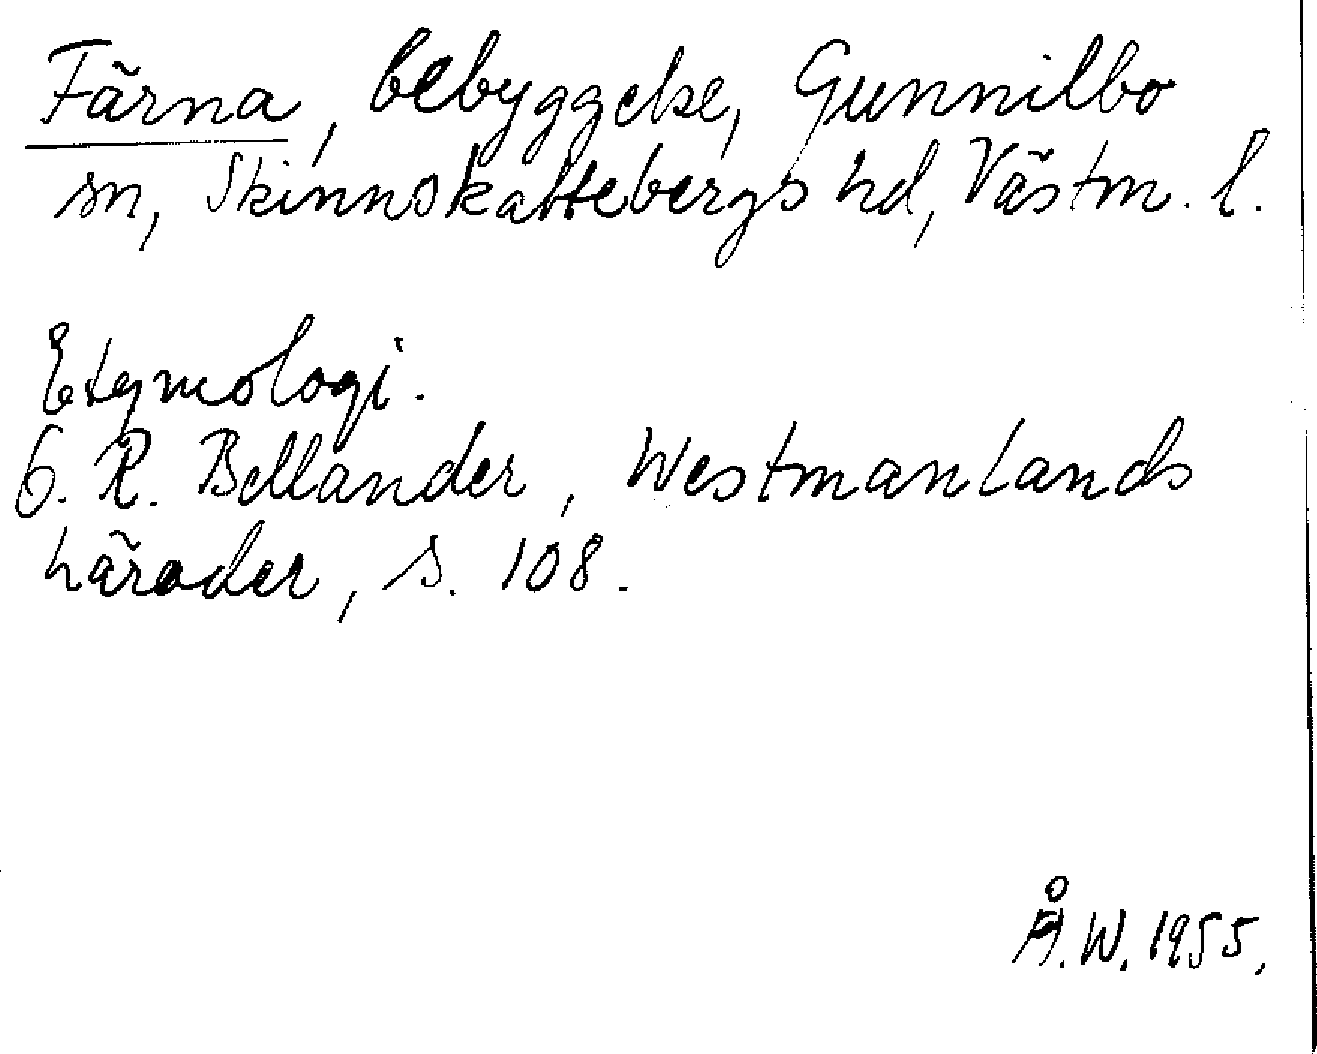 Färna, bebyggelse, Gunnilbo
sn, Skinnskattebergs hd, Västm. l.
Etymologi.
E. R. Bellander, Westmanlands
härader, s. 108.
Å.W. 1955.